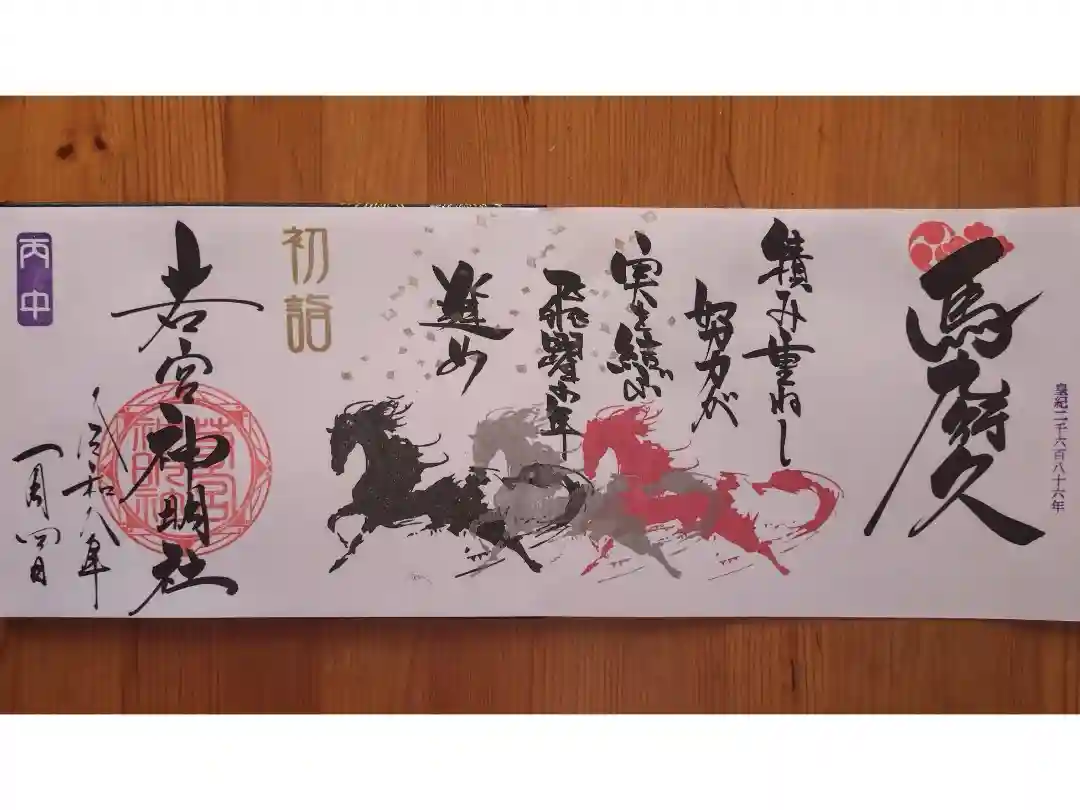 皇紀二千六百八十六年
馬九行久
積み重ねし
努力が
実を結ぶ
飛躍の年
進め
初詣
若宮神明社
若宮神明社
令和八年
一月四日
丙午